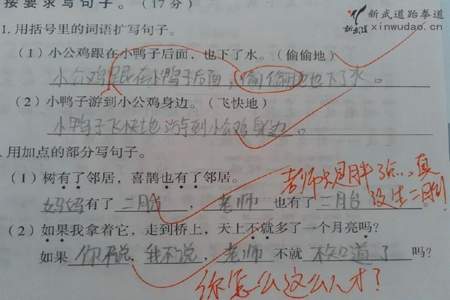 接要求写句子。(17分)
新武道跆拳道
xinwudao.cn
1.用括号里的词语扩写句子。
(1)小公鸡跟在小鸭子后面,也下了水。(偷偷地)
小公鸡跟在小鸭子后面,偷偷地也下了水。
(2)小鸭子游到小公鸡身边。(飞快地)
小鸭子飞快地游到小公鸡身边。
.用加点的部分写句子。
(1)树有了邻居,喜鹊也有了邻居。
妈妈有了二胎,老师也有了二胎
老师只是胖了,没生二胎
(2)如果我拿着它,走到桥上,天上不就多了一个月亮吗?
如果你不说,我不说,老师不就不知道了吗?
你怎么这么人才?